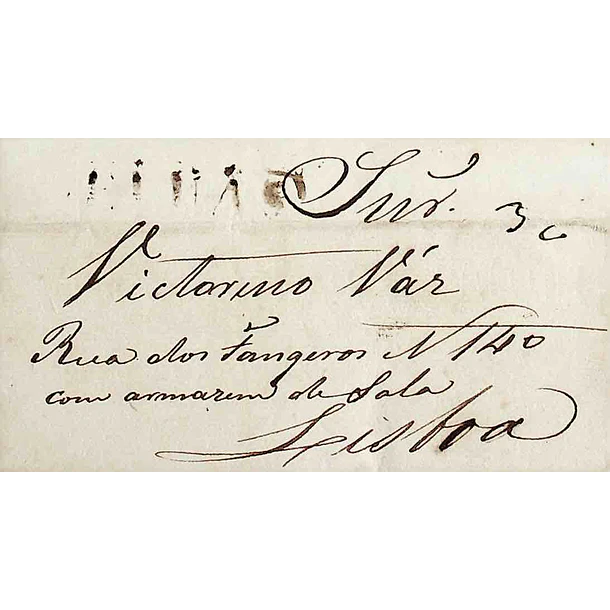 Snr. 30
Victorino Váz
Rua dos Fangeros N 140
com armazem de Sola
Lisboa